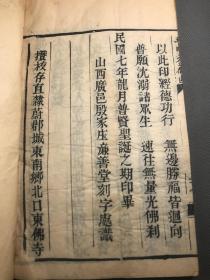 以此印經德功行　無邊勝福皆迴向
普願沈溺諸眾生　速往無量光佛刹
民國七年龍月普賢聖誕之期印畢
山西廣邑殷家庄施善堂刻字處識
撥板存直隸蔚郡城東南鄉北口東佛寺